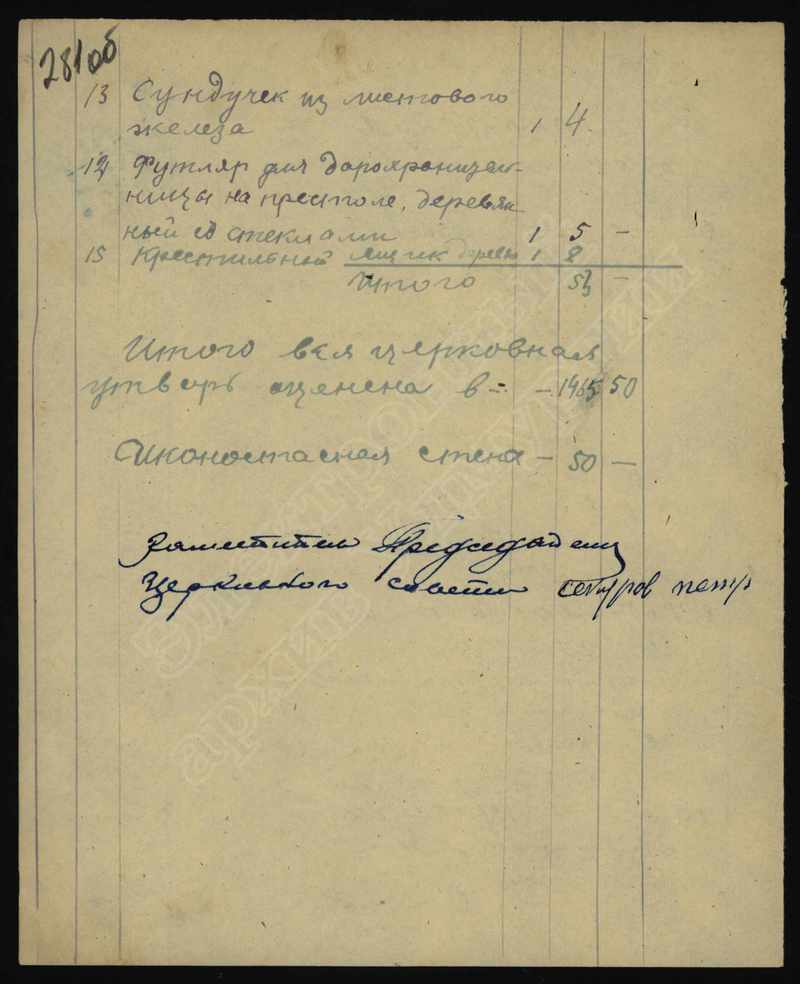 281об
13 Сундучек из листового
железа 1 4
14 Футляр для дарохранитель-
ницы на престоле, деревян
ный со стеклами 1 5 —
15 Крестильный ящик дерев 1 8
Итого 53 —
Итого вся церковная
утварь оценена в — — 1465 50
Иконостасная стена — 50 —
Заместитель Председателя
Церковного совета